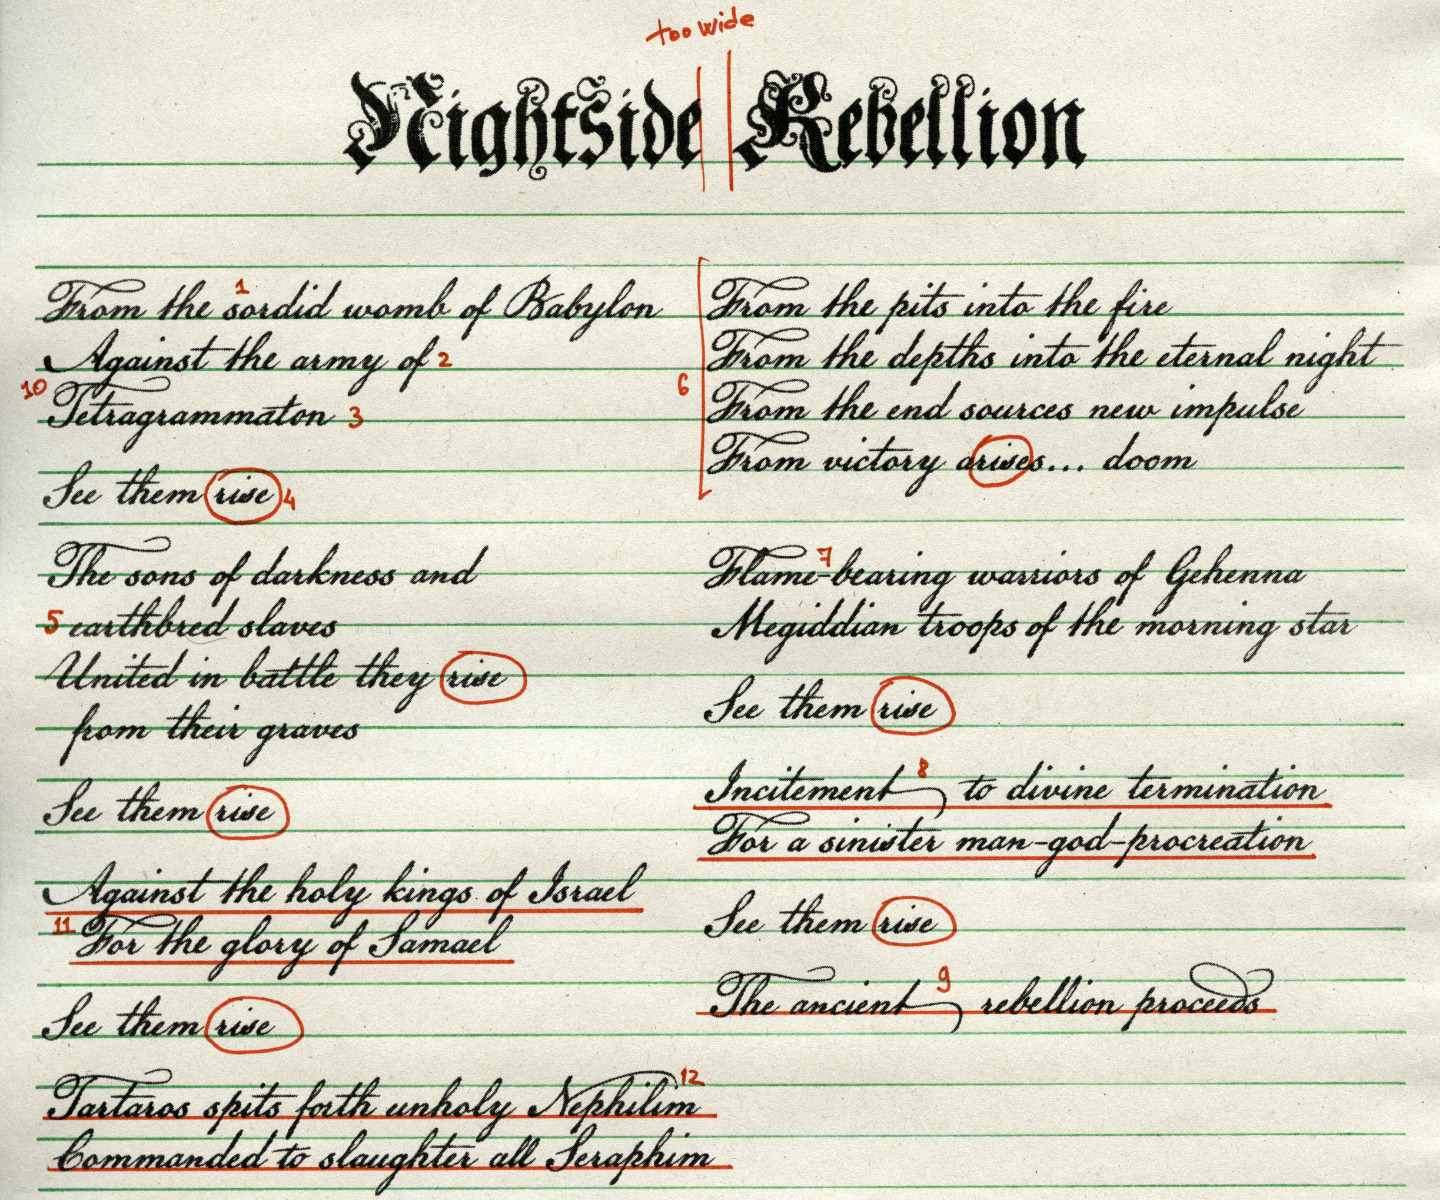 too wide
Nightside Rebellion
1
From the sordid womb of Babylon
Against the army of 2
10
Tetragrammaton 3
See them rise 4
The sons of darkness and
5 earthbred slaves
United in battle they rise
from their graves
See them rise
Against the holy kings of Israel
11 For the glory of Samael
See them rise
12
Tartaros spits forth unholy Nephilim
Commanded to slaughter all Seraphim
From the pits into the fire
From the depths into the eternal night
6
From the end sources new impulse
From victory arises... doom
7
Flame-bearing warriors of Gehenna
Megiddian troops of the morning star
See them rise
8
Incitement to divine termination
For a sinister man-god-procreation
See them rise
9
The ancient rebellion proceeds